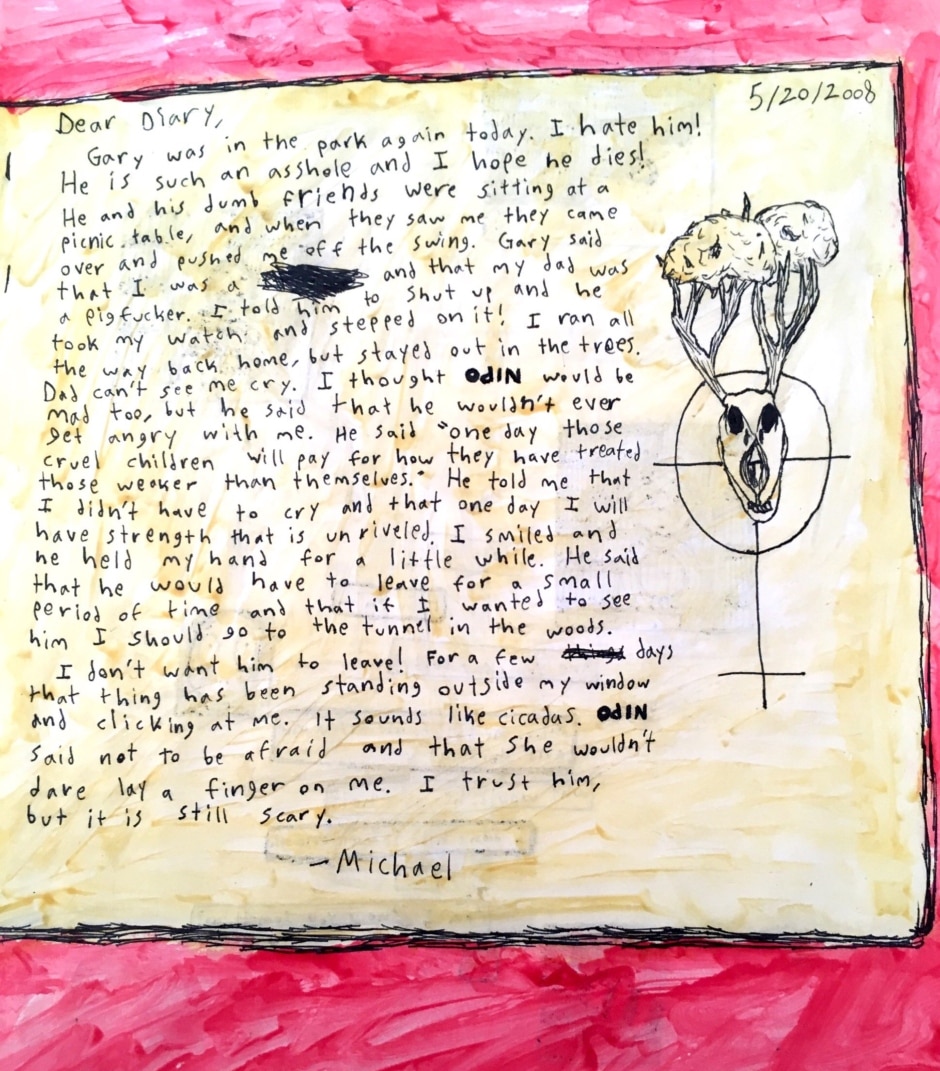 5/20/2008
Dear Diary,
Gary was in the park again today. I hate him!
He is such an asshole and I hope he dies!
He and his dumb friends were sitting at a
picnic table, and when they saw me they came
over and pushed me off the swing. Gary said
that I was a and that my dad was
a pigfucker. I told him to shut up and he
took my watch and stepped on it! I ran all
the way back home, but stayed out in the trees.
Dad can't see me cry. I thought ODIN would be
mad too, but he said that he wouldn't ever
get angry with me. He said "one day those
cruel children will pay for how they have treated
those weaker than themselves." He told me that
I didn't have to cry and that one day I will
have strength that is unriveled. I smiled and
he held my hand for a little while. He said
that he would have to leave for a small
period of time and that if I wanted to see
him I should go to the tunnel in the woods.
I don't want him to leave! For a few things days
that thing has been standing outside my window
and clicking at me. It sounds like cicadas. ODIN
said not to be afraid and that she wouldn't
dare lay a finger on me. I trust him,
but it is still scary.
-Michael